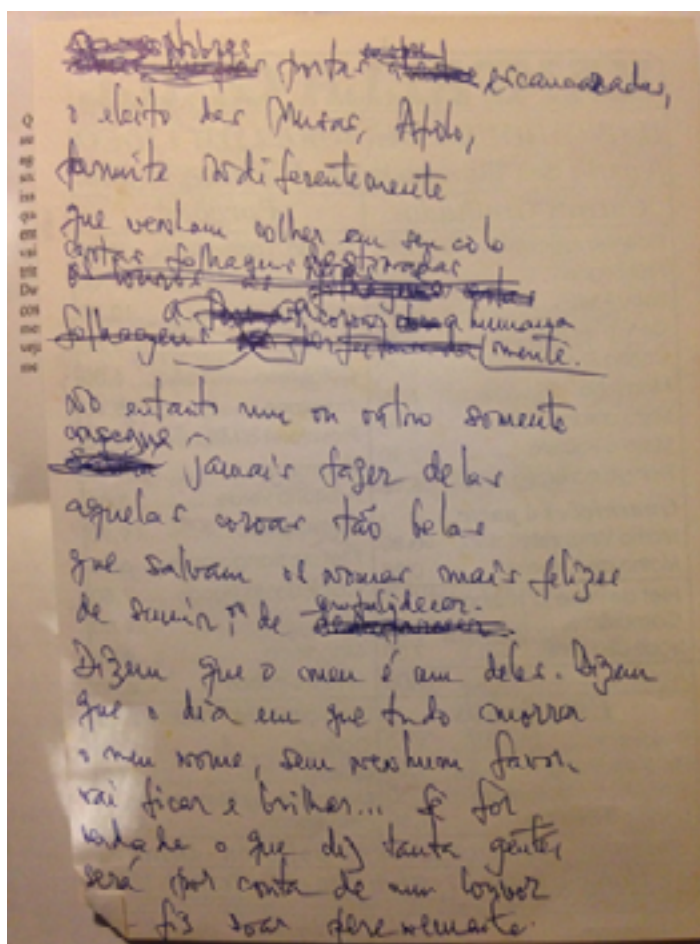 portas escancaradas,
o eleito das Musas, Apolo,
permite indiferentemente
que venham colher em seu colo
estas folhagens
os louros as
a coroar a humana
folhagens mente.
no entanto um ou outro somente
consegue
jamais fazer delas
aquelas coroas tão belas
que salvam os nomes mais felizes
de sumir, ou de empalidecer.
Dizem que o meu é um deles. Dizem
que o dia em que tudo morrer
o meu nome, sem nenhum favor,
vai ficar e brilhar... Se for
verdade o que diz tanta gente,
será por conta de um louvor
fiz soar perenemente.